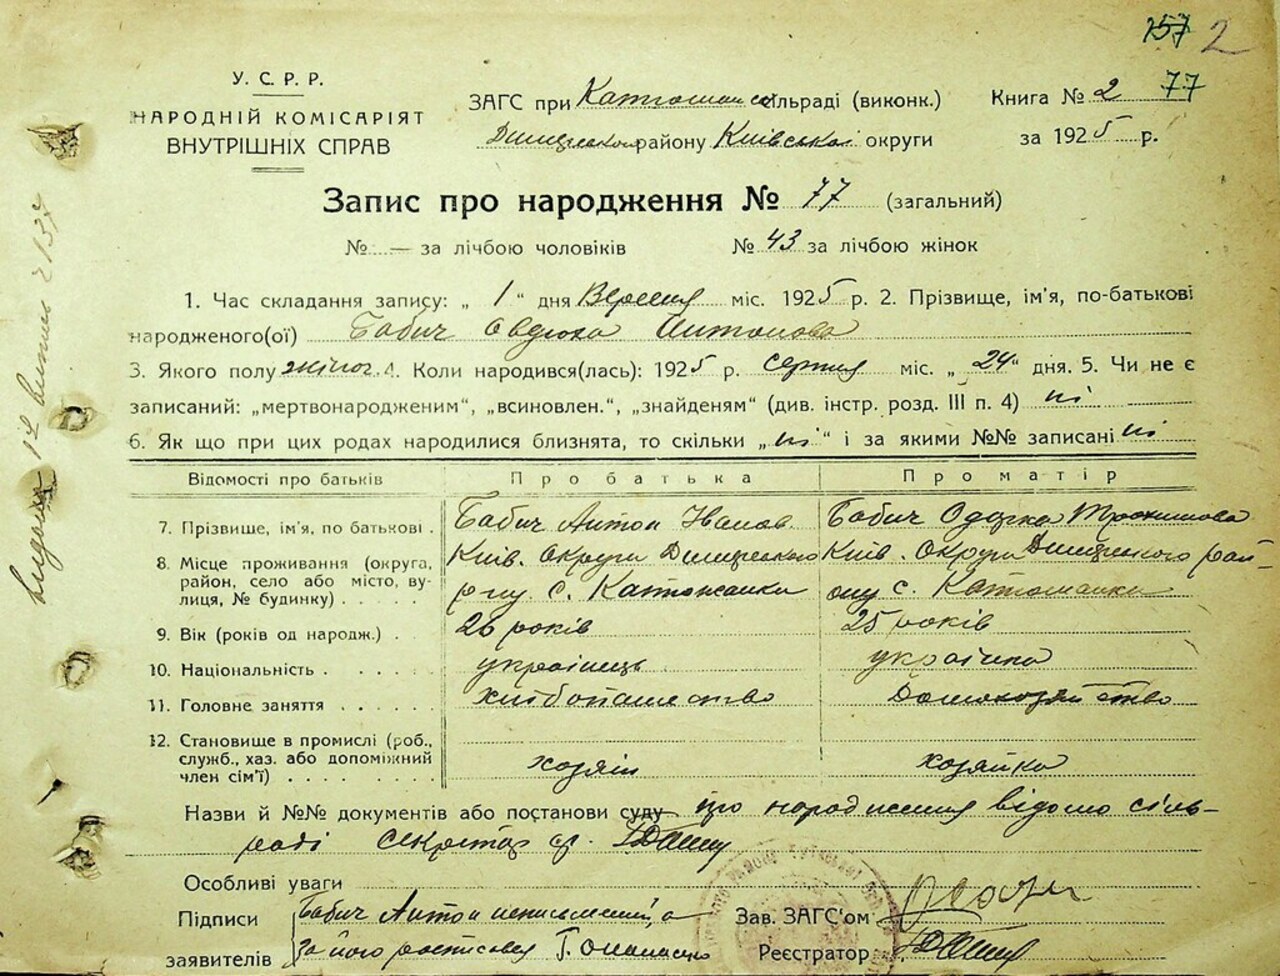 157 2
77
У. С. Р. Р.
НАРОДНІЙ КОМІСАРІЯТ
ВНУТРІШНІХ СПРАВ
ЗАГС при Катюжан сільраді (виконк.)
Димерського району Київської округи
Книга № 2
за 1925 р.
Запис про народження № 77 (загальний)
№ — за лічбою чоловіків № 43 за лічбою жінок
1. Час складання запису: „ 1 “ дня Вересня міс. 1925 р. 2. Прізвище, ім'я, по-батькові
народженого(ої) Бабич Овдюха Антонова
3. Якого полу жіноч. 4. Коли народився(лась): 1925 р. серпня міс. „ 24 “ дня. 5. Чи не є
записаний: „мертвонародженим“, „всиновлен.“, „знайденям“ (див. інстр. розд. III п. 4) ні
6. Як що при цих родах народилися близнята, то скільки „ ні “ і за якими №№ записані ні
Відомості про батьків Про батька Про матір
7. Прізвище, ім'я, по батькові . Бабич Антон Іванов Бабич Одарка Трохимова
8. Місце проживання (округа, район, село або місто, вулиця, № будинку) . . . . . Київ. Округи Димерського р-ну с. Катюжанки Київ. Округи Димерського району с. Катюжанки
9. Вік (років од народж.) . . 26 років 25 років
10. Національність . . . . . . українець українка
11. Головне заняття . . . . . хлібопашество Домохозяйство
12. Становище в промислі (роб., служб., хаз. або допоміжний член сім'ї) . . . . . . . хозяін хозяйка
Назви й №№ документів або постанови суду про народження відомо сіль-
раді Секретар с/р.
Особливі уваги
Підписи заявителів Бабич Антон неписьменний, а
за його росписався Г.
Зав. ЗАГС'ом
Реєстратор